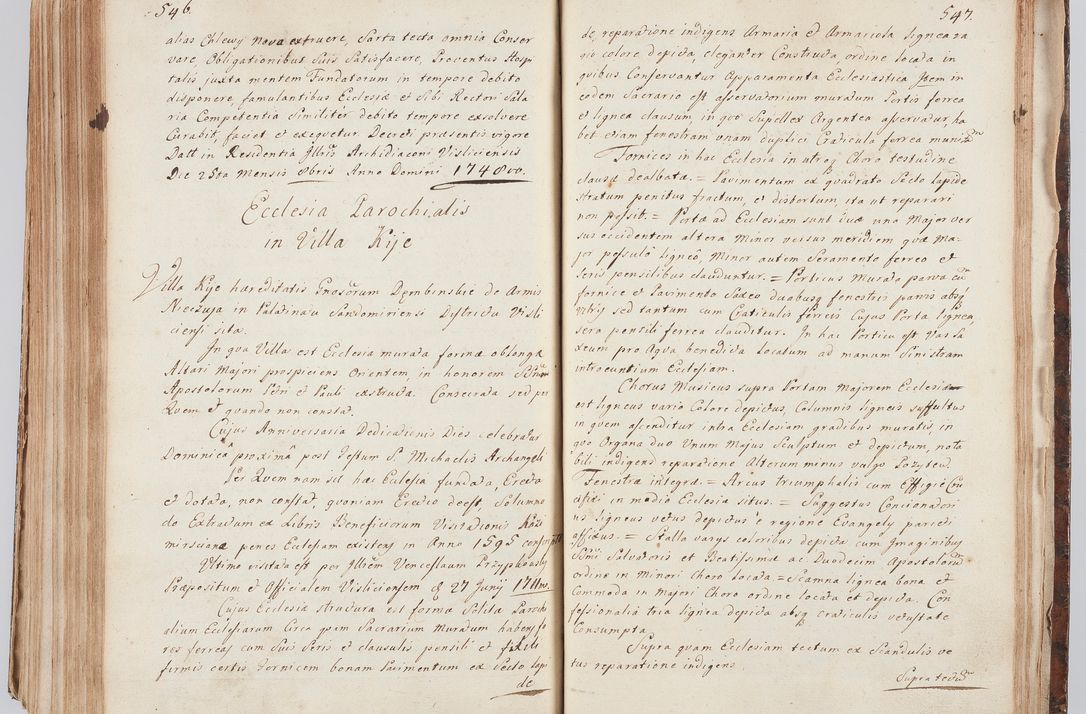 546.
alias Chlewy Nova extruere, Sarta tecta omnia Conser
vare, Obligationibus Suis Satisfacere, Proventus Hospi
talis juxta mentem Fundatorum in tempore debito
disponere, famulantibus Ecclesiæ et Sibi Rectori Sala
ria Competentia Similiter debito tempore exsolvere
Curabit, faciet et exequetur Decreti præsentis vigore
Datt in Residentia Illris Archidiaconi Visliciensis
Die 25ta Mensis 8bris Anno Domini 1748vo.
Ecclesia Parochialis
in Villa Kije
Villa Kije hæreditatis Gnosorum Dębinskie de Armis
Nieczuja in Palatinatu Sandomiriensi Districtu Visli
ciensi sita.
In qua Villa est Ecclesia murata forma oblonga
Altari Majori prospiciens Orientem, in honorem SS
Apostolorum Petri et Pauli extructa. Consecrata sed per
Quem et quando non constat.
Cujus Anniversaria Dedicationis Dies celebratur
Dominica proxima post Festum S. Michaelis Archangeli
Per Quem nam sit hæc Ecclesia fundata, Erecta
et dotata, non constat, quoniam Erectio deest, Solummo
do Extractum ex Libris Beneficiorum Visitationis Razi
mirsciana penes Ecclesiam existens in Anno 1595
Ultimo visitata est per Illrem Venceslaum Przypkowsky
Præpositum et Officialem Visliciensem d 27 Junij 1711mo.
Cujus Ecclesia structura est forma Solita Paroch
alium Ecclesiarum Circa quam Sacrarium Muratum habens fo
res ferreas cum Suis Seris et clausulis pensili et fixili
firmis certis Fornicem bonam Pavimentum ex Secto lapi
de
547.
de, reparatione indigens Armaria et Armariola lignea va
rio colore depicta, eleganter Constructa, ordine locata in
quibus Conservantur Apparamenta Ecclesiastica Item in
eodem Sacrario est asservatorium muratum Portis ferrea
et lignea clausum, in quo Supellex Argentea asservatur, ha
bet etiam fenestram unam duplici Craticula ferrea munitam
Fornices in hac Ecclesia in utroq Choro testudine
clausæ dealbatæ. = Pavimentum ex quadrato Secto lapide
Stratum penitus fractum, et distortum, ita ut reparari
non possit. = Portæ ad Ecclesiam sunt duæ una Major ver
sus occidentem altera Minor versus meridiem quæ Ma-
jor pessulo ligneo, Minor autem Seramento ferreo et
Seris pensilibus clauduntur. = Porticus Murata parva cum
fornice et Pavimento Saxeo duabusq fenestris parvis absq
vitris sed tantum cum Craticulis ferreis Cujus Porta lignea,
sera pensili ferrea clauditur. In hac Porticu est Vas Sa
xeum pro Aqua benedicta locatum ad manum Sinistram
introeuntium Ecclesiam.
Chorus Musicus supra Portam majorem Ecclesiæ
est ligneus vario Colore depictus, Columnis ligneis suffultus
in quem ascenditur intra Ecclesiam gradibus muratis, in
quo Organa duo Unum Majus Sculptum et depictum, nota
bili indigens reparatione Alterum minus vulgo Pozytew.
Fenestræ integræ. = Arcus triumphalis cum Effigie Cru
cifixi in medio Ecclesiæ situs. = Suggestus Concionatori
us ligneus vetus depictus e regione Evangely parieti
affixus. = Stalla varys coloribus depicta cum Imaginibus
SSmi Salvatoris et Beatissimæ ac Duodecim Apostolorum
ordine in Minori Choro locata = Scamna lignea bona et
Commoda in Majori Choro ordine locata et depicta. Con
fessionalia tria lignea depicta absq craticulis vetustate
Consumpta.
Supra quam Ecclesiam tectum ex Scandulis ve
tus reparatione indigens.
Supra tectum